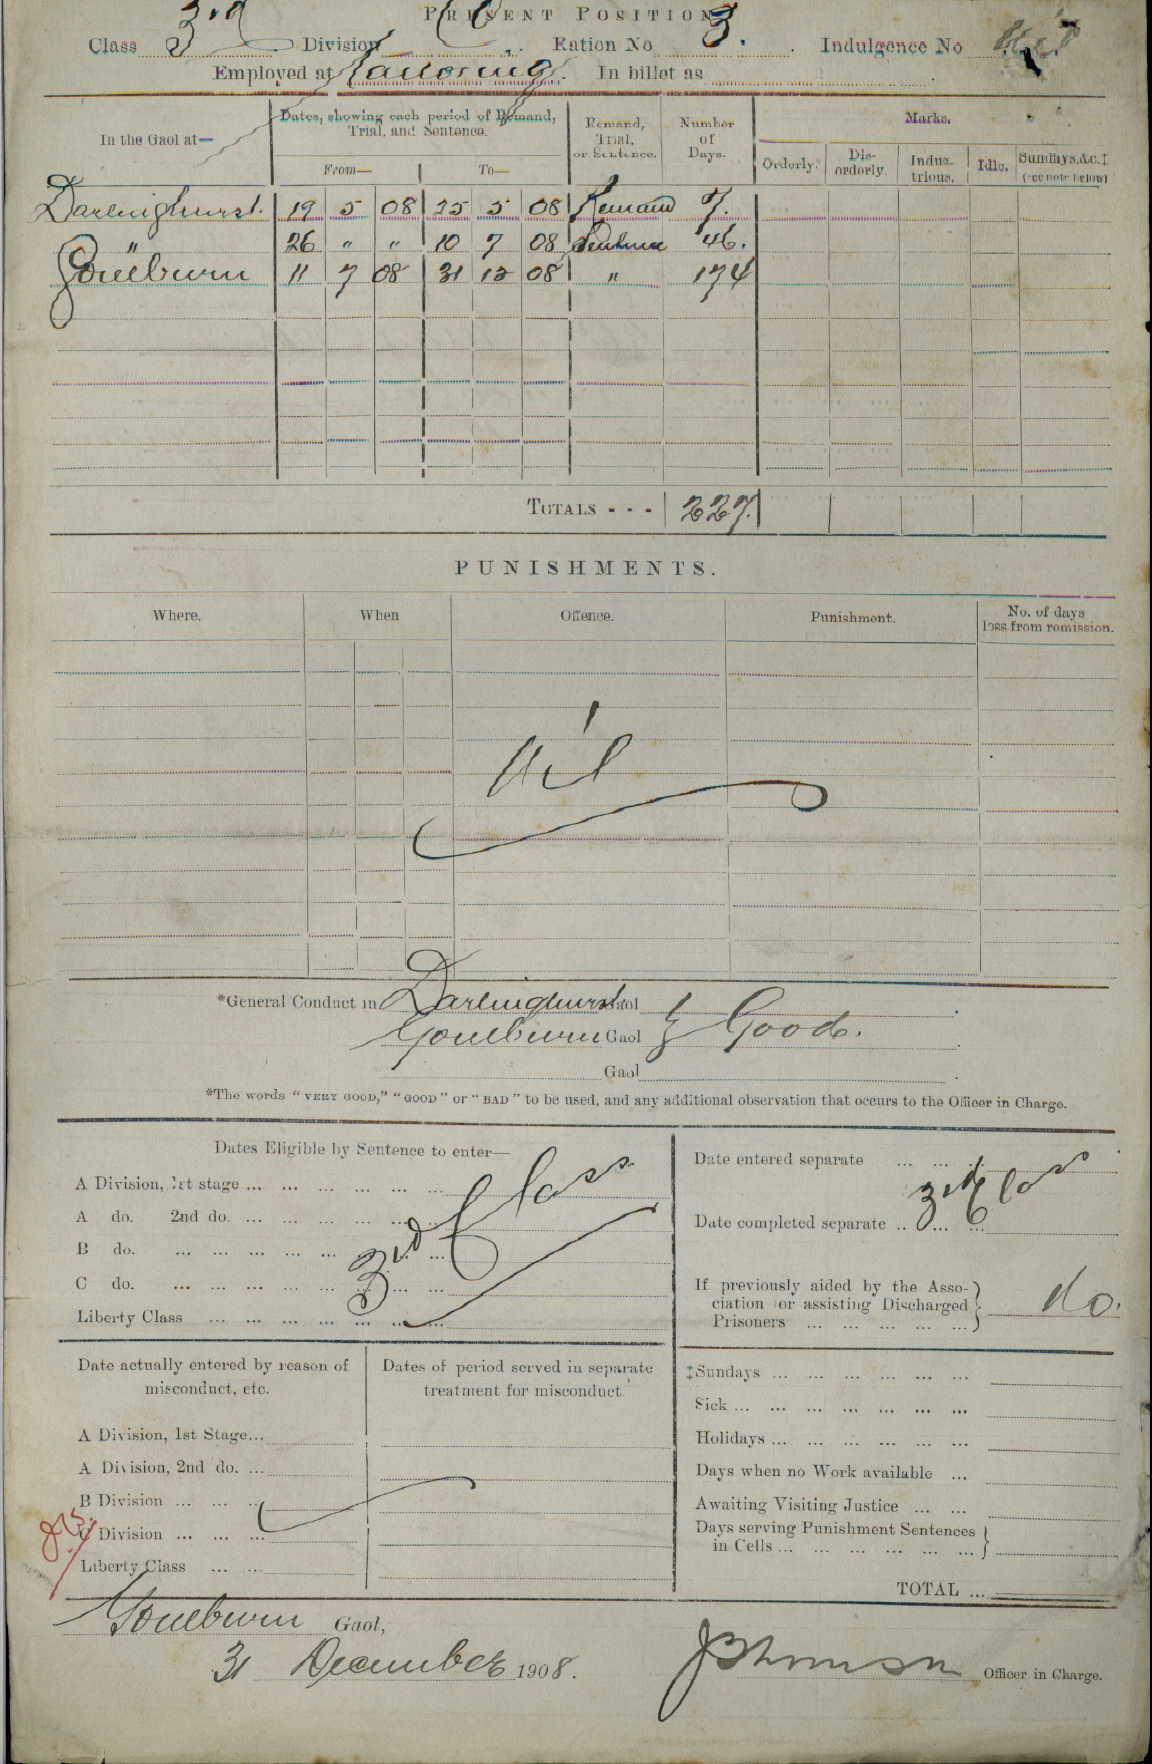 PRESENT POSITION
Class 3rd Division C. Ration No 3. Indulgence No
Employed at Tailoring. In billet as
In the Gaol at—
Dates, showing each period of Remand, Trial, and Sentence.
From— To—
Remand, Trial, or Sentence.
Number of Days.
Marks.
Orderly. Dis-orderly. Indus-trious. Idle. Sundays, &c.‡ (see note below)
Darlinghurst. 19 5 08 25 5 08 Remand 7.
" 26 " " 10 7 08 Sentence 46.
Goulburn 11 7 08 31 12 08 " 174
TOTALS - - - 227.
PUNISHMENTS.
Where. When Offence. Punishment. No. of days loss from remission.
Nil
*General Conduct in Darlinghurst Gaol
Goulburn Gaol } Good.
Gaol
*The words "VERY GOOD," "GOOD" or "BAD" to be used, and any additional observation that occurs to the Officer in Charge.
Dates Eligible by Sentence to enter—
A Division, 1st stage ... ... ... ... ... ...
A do. 2nd do. ... ... ... ... ... ...
B do. ... ... ... ... ... ...
C do. ... ... ... ... ... ...
Liberty Class ... ... ... ... ... ...
3rd Class
Date entered separate ... ... ...
3rd Class
Date completed separate .. ... ...
If previously aided by the Asso-
ciation for assisting Discharged
Prisoners ... ... ... ... ... } No.
Date actually entered by reason of
misconduct, etc.
A Division, 1st Stage...
A Division, 2nd do. ...
B Division ... ... ...
C Division ... ... ...
Liberty Class ... ...
Dates of period served in separate
treatment for misconduct.
‡Sundays ... ... ... ... ... ...
Sick ... ... ... ... ... ... ...
Holidays ... ... ... ... ... ...
Days when no Work available ...
Awaiting Visiting Justice ... ...
Days serving Punishment Sentences
in Cells ... ... ... ... ... ... }
TOTAL ...
Goulburn Gaol,
31 December 1908.
Officer in Charge.